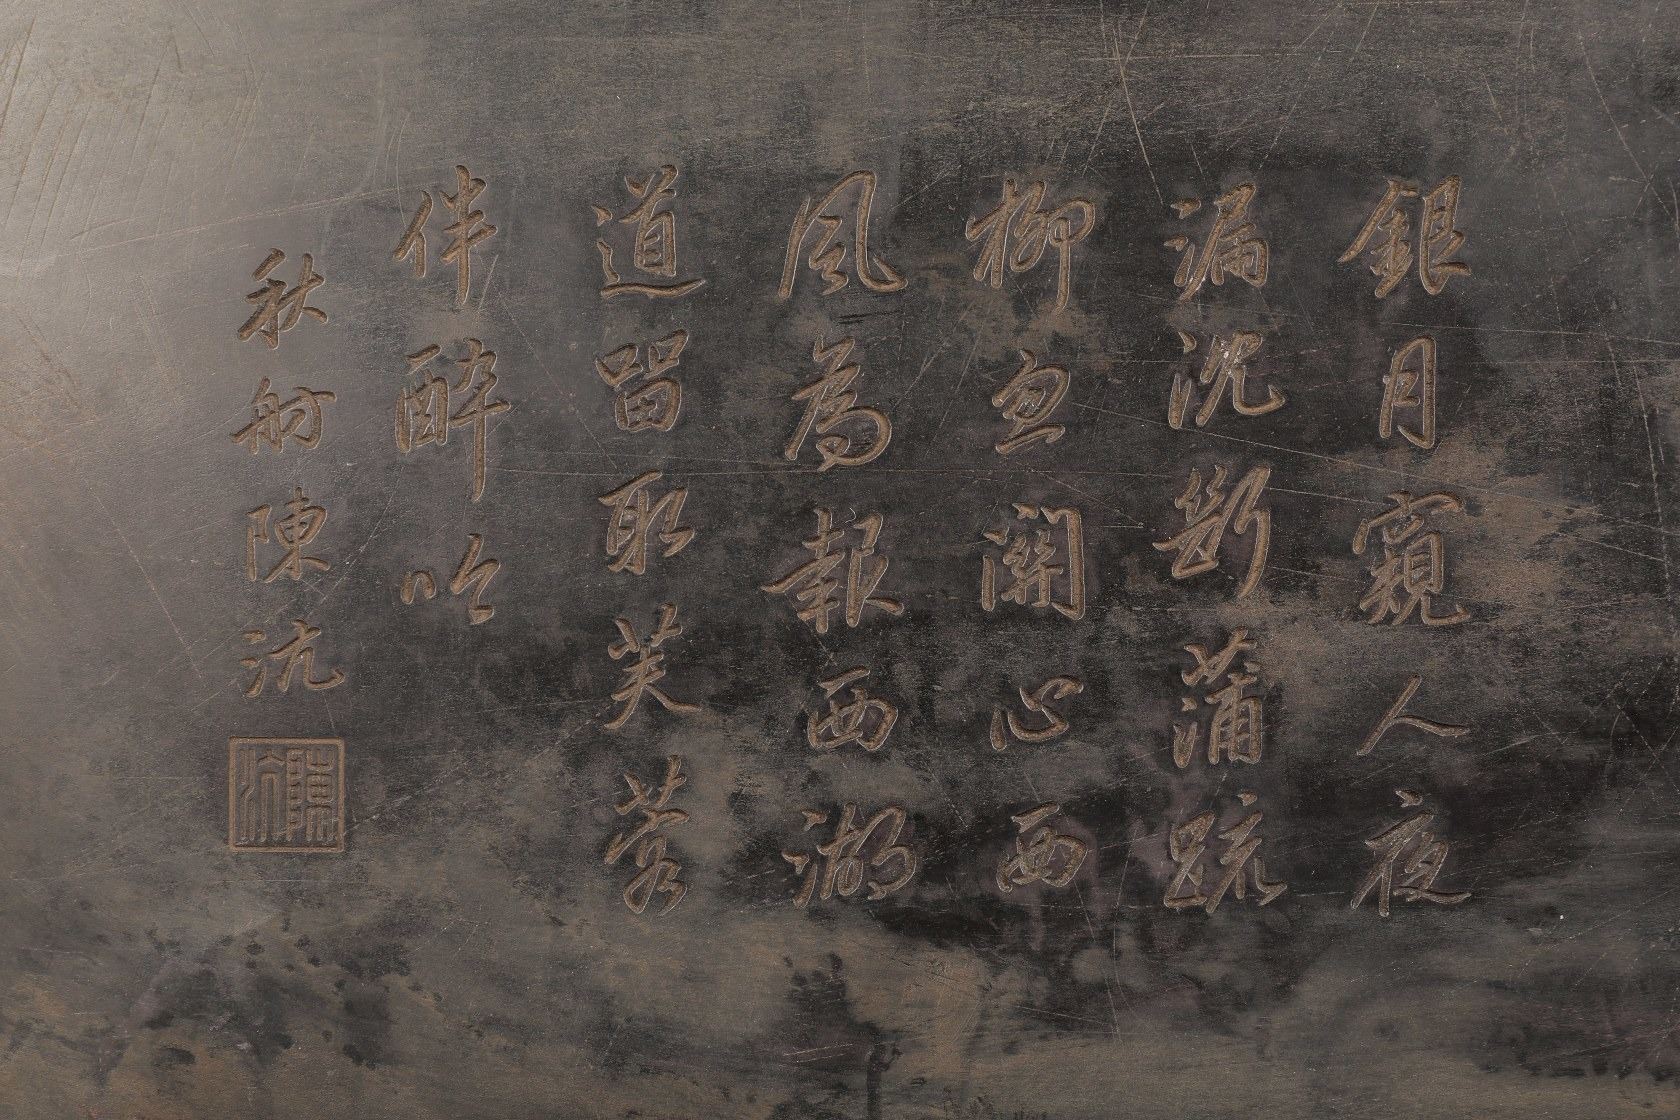 銀月窺人夜
漏沈斷蒲疏
柳忽關心西
風為報西湖
道留取芙蓉
伴醉吟
秋舫陳沆
陳沆